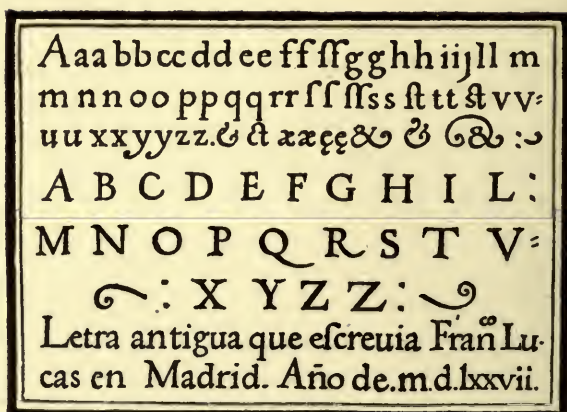 Aaabbccddeeffſſgghhiijll m
mnnooppqqrrſſſſss ſtttſtvv:
uuxxyyzz.& ct ææęę& & & :~
A B C D E F G H I L:
M N O P Q R S T V:
: X Y Z Z :
Letra antigua que eſcreuia Franco Lu-
cas en Madrid. Año de.m.d.lxxvii.